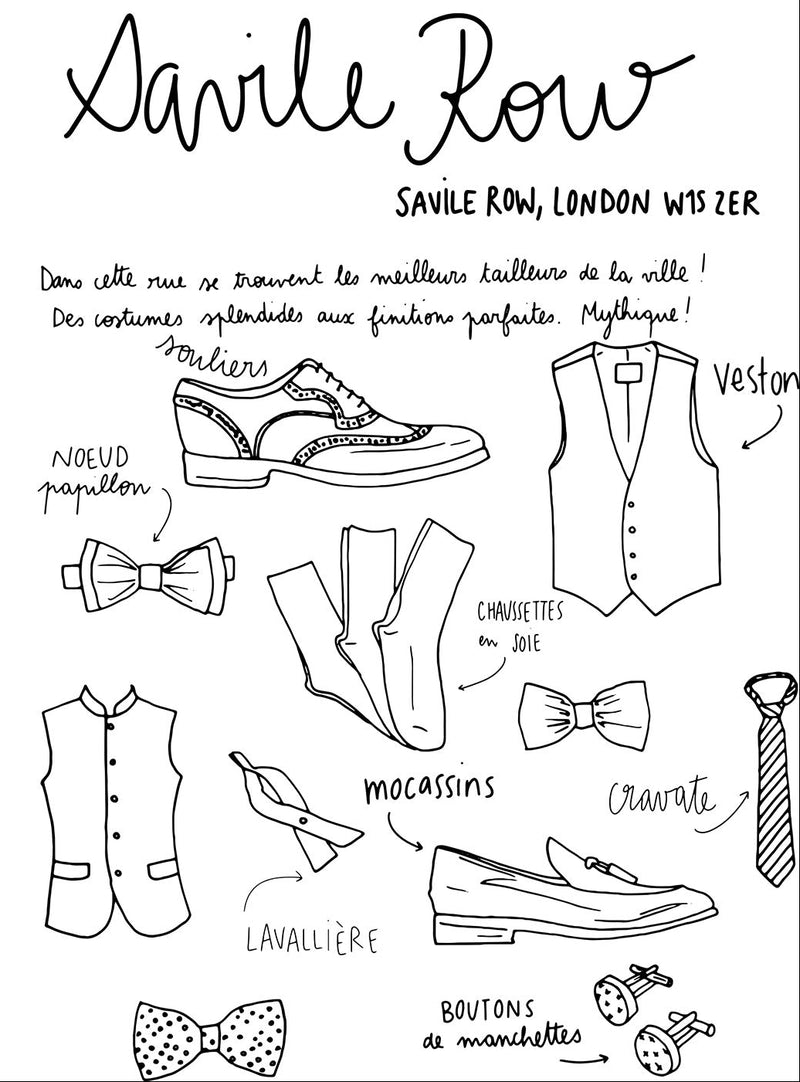 Savile Row
SAVILE ROW, LONDON W1S 2ER
Dans cette rue se trouvent les meilleurs tailleurs de la ville !
Des costumes splendides aux finitions parfaites. Mythique !
Souliers
Veston
NOEUD
papillon
CHAUSSETTES
en SOIE
mocassins
cravate
LAVALLIÈRE
BOUTONS
de manchettes